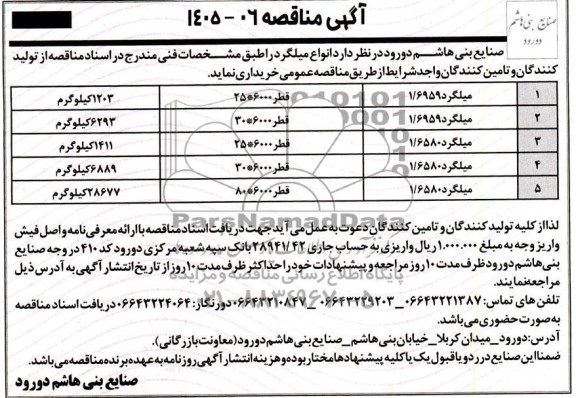 آگهی مناقصه ۰۶-۱۴۰۵
صنایع بنی هاشم
دورود
صنایع بنی هاشم دورود در نظر دارد انواع میلگرد را طبق مشخصات فنی مندرج در اسناد مناقصه از تولید
کنندگان و تامین کنندگان واجد شرایط از طریق مناقصه عمومی خریداری نماید.
۱ میلگرد ۱/۶۹۵۹ قطر ۶۰۰۰*۲۵ ۱۲۰۳ کیلوگرم
۲ میلگرد ۱/۶۹۵۹ قطر ۶۰۰۰*۳۰ ۶۲۹۳ کیلوگرم
۳ میلگرد ۱/۶۵۸۰ قطر ۶۰۰۰*۲۵ ۱۴۱۱ کیلوگرم
۴ میلگرد ۱/۶۵۸۰ قطر ۶۰۰۰*۳۰ ۶۸۸۹ کیلوگرم
۵ میلگرد ۱/۶۵۸۰ قطر ۶۰۰۰*۸۰ ۲۸۶۷۷ کیلوگرم
ParsNamadData
پایگاه اطلاع رسانی مناقصه و مزایده
لذا از کلیه تولید کنندگان و تامین کنندگان دعوت به عمل می آید جهت دریافت اسناد مناقصه با ارائه معرفی نامه و اصل فیش
واریز وجه به مبلغ ۱.۰۰۰.۰۰۰ ریال واریزی به حساب جاری ۲۸۹۴۱/۴۲ بانک سپه شعبه مرکزی دورود کد ۴۱۰ در وجه صنایع
بنی هاشم دورود ظرف مدت ۱۰ روز مراجعه و پیشنهادات خود را حداکثر ظرف مدت ۱۰ روز از تاریخ انتشار آگهی به آدرس ذیل
مراجعه نمایند.
تلفن های تماس: ۰۶۶۴۳۲۲۱۳۸۷ _ ۰۶۶۴۳۲۲۹۲۰۳ _ ۰۶۶۴۳۲۱۰۸۴۷ دورنگار: ۰۶۶۴۳۲۲۴۰۶۴ دریافت اسناد مناقصه
به صورت حضوری می باشد.
آدرس: دورود_میدان کربلا_خیابان بنی هاشم_صنایع بنی هاشم دورود (معاونت بازرگانی).
ضمنا این صنایع در رد و یا قبول یک یا کلیه پیشنهادها مختار بوده و هزینه انتشار آگهی روزنامه به عهده برنده مناقصه می باشد.
صنایع بنی هاشم دورود